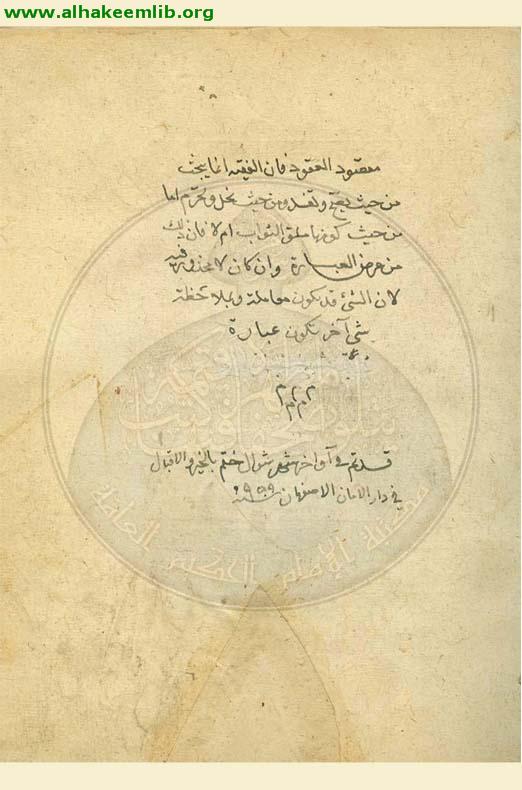 www.alhakeemlib.org
مقصود العقود فان الفقيه انما يبحث
من حيث تصح وتفسد ومن حيث تحل وتحرم اما
من حيث كونها متعلق الثواب ام لا فان ذلك
من عرض العبارة وان كان لا محذور فيه
لان الشئ قد يكون معاملة وبملاحظة
شئ آخر يكون عبارة
م م م م
قد تم في آواخر شهر شوال ختم بالخير والاقبال
في دار الامان الاصفهان سنة ٩٥٩
مكتبة الإمام الحكيم العامة